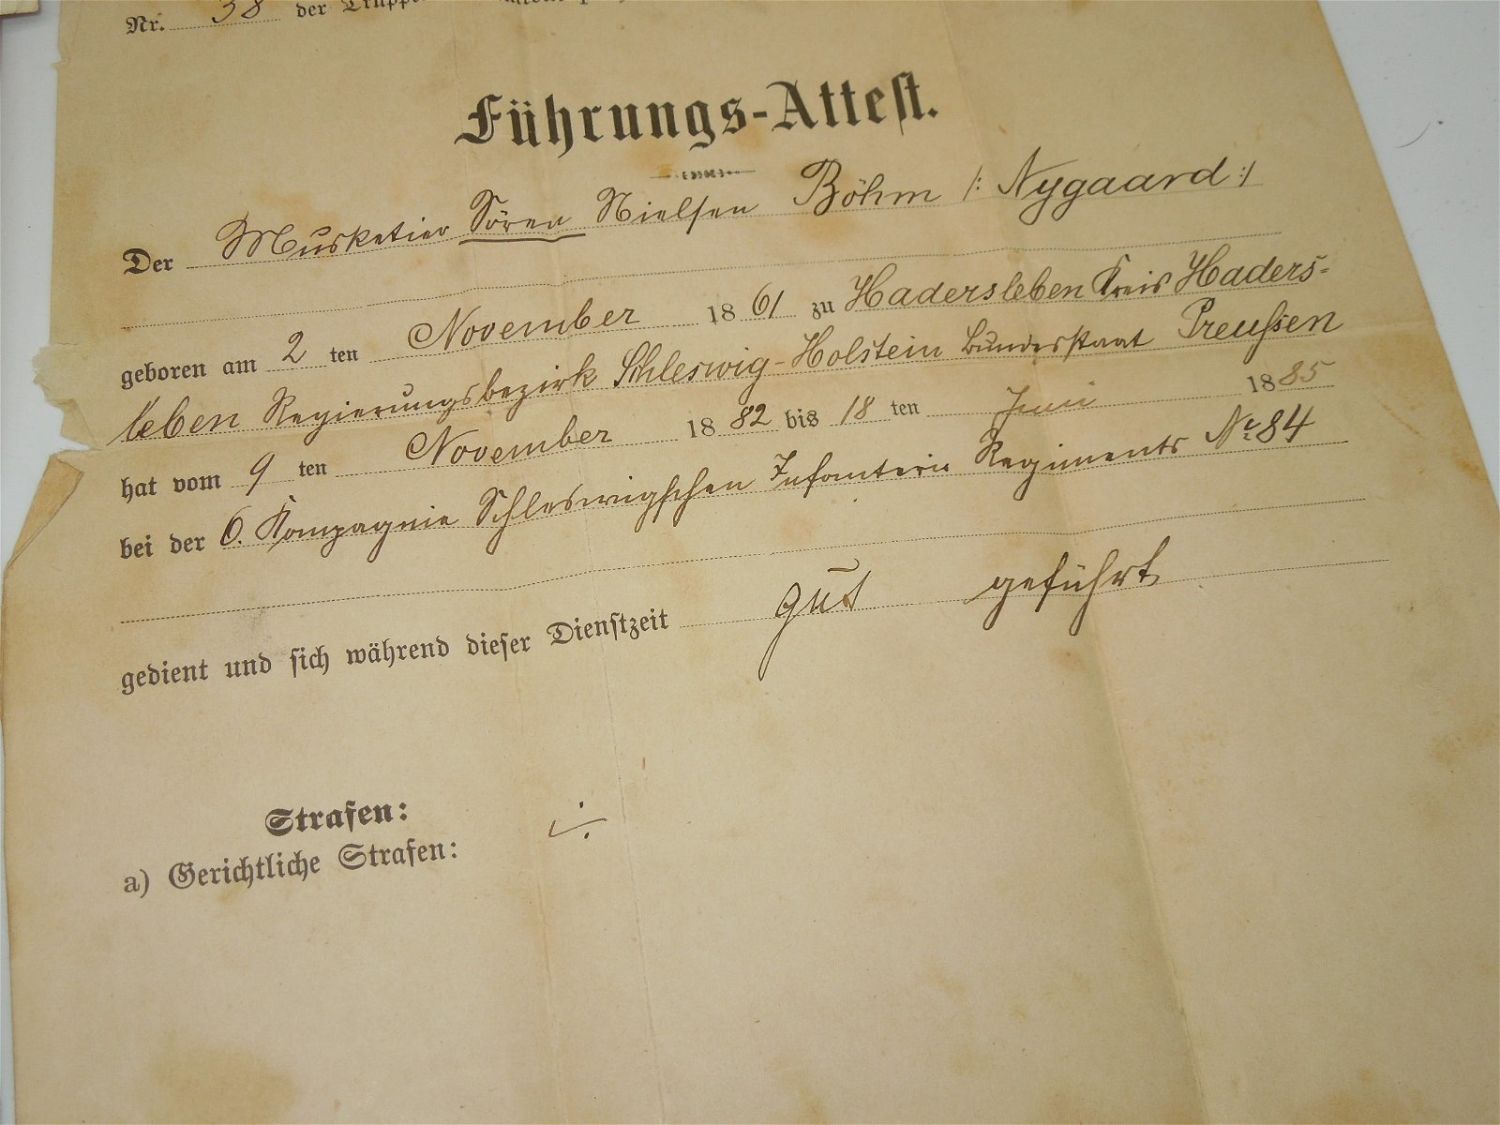 Nr. 38 der
Führungs-Attest.
Der Musketier Sören Nielsen Böhm /: Nygaard :/
geboren am 2 ten November 18 61 zu Hadersleben Kreis Haders-
leben Regierungsbezirk Schleswig-Holstein Bundesstaat Preußen
hat vom 9 ten November 18 82 bis 18 ten Juni 1885
bei der 6. Kompagnie Schleswigschen Infanterie Regiments No. 84
gedient und sich während dieser Dienstzeit gut geführt
Strafen:
a) Gerichtliche Strafen: ./.